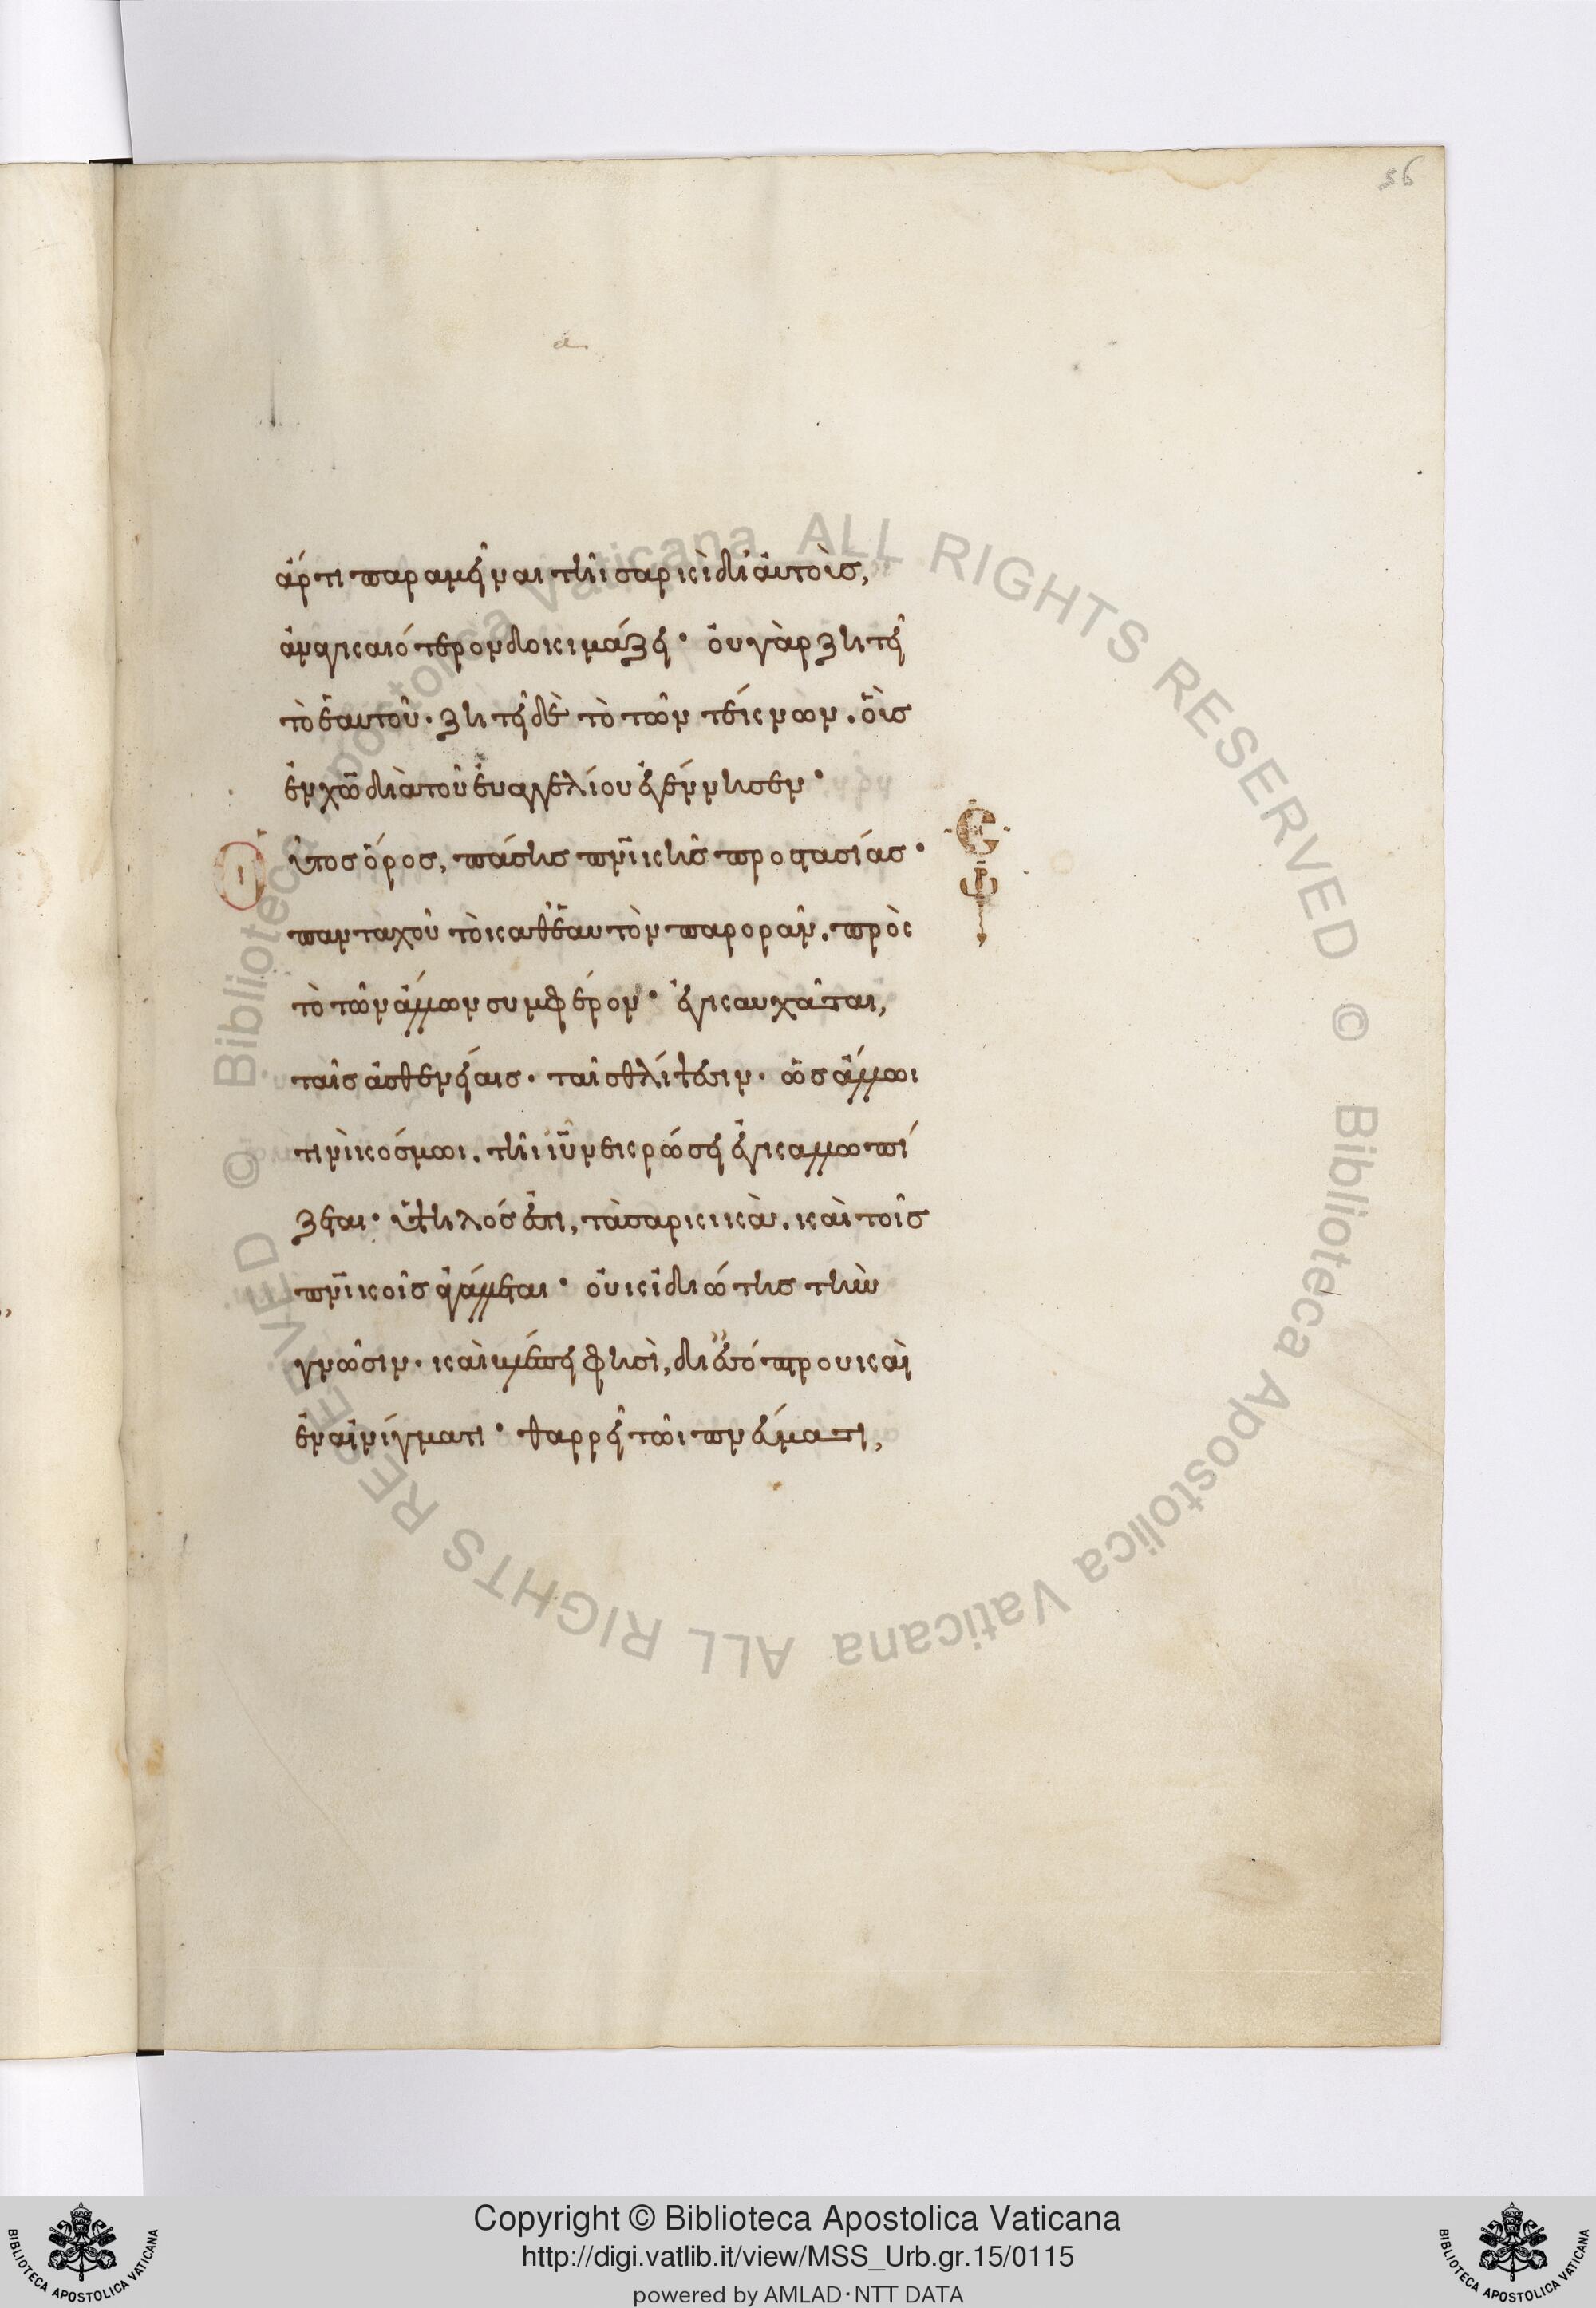 36
ἄρτι παραμεῖναι τῆι σαρκὶ δι' αὐτοὺσ,
ἀναγκαιότερον δοκιμάζει· οὐ γὰρ ζητεῖ
τὸ ἑαυτοῦ· ζητεῖ δὲ τὸ τῶν τέκνων. οὓσ
ἐν χω̅ διὰ τοῦ εὐαγγελίου ἐγέννησεν·
οὗτος ὅρος, πάσης πνικῆς προστασίας·
πανταχοῦ τὸ καθ' ἑαυτὸν παρορᾶν. πρὸς
τὸ τῶν ἄλλων συμφέρον· ἐγκαυχᾶται,
ταῖς ἀσθενείαις. ταῖς θλίψεσιν. ὡς ἄλλωι
τινὶ κόσμωι. τῆι ιυ̅ νεκρώσει ἐγκαλλωπί
ζεται· ὑψηλός ἐστι, τὰ σαρκικὰ. καὶ τοῖς
πνικοῖς ἀγάλλεται· οὐκ ἰδιώτης τὴν
γνῶσιν. καὶ βλέπειν φησὶ, δι' ἐσόπτρου καὶ
ἐν αἰνίγματι· θαρρεῖ τῶι πνεύματι,
Copyright © Biblioteca Apostolica Vaticana
http://digi.vatlib.it/view/MSS_Urb.gr.15/0115
powered by AMLAD·NTT DATA
Biblioteca Apostolica Vaticana ALL RIGHTS RESERVED ©
Biblioteca Apostolica Vaticana ALL RIGHTS RESERVED ©
BIBLIOTECA APOSTOLICA VATICANA
BIBLIOTECA APOSTOLICA VATICANA